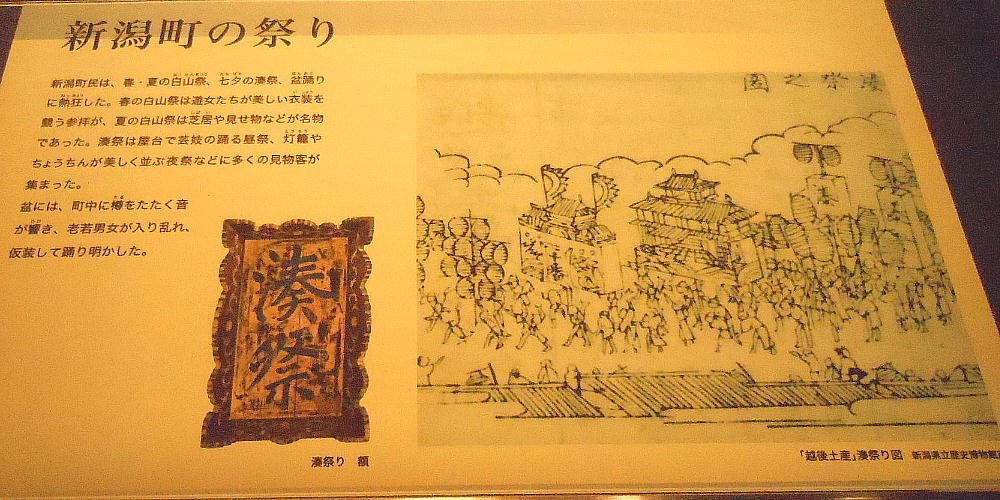 新潟町の祭り
新潟町民は、春・夏の白山祭、七夕の湊祭、盆踊り
に熱狂した。春の白山祭は遊女たちが美しい衣装を
競う参拝が、夏の白山祭は芝居や見せ物などが名物
であった。湊祭は屋台で芸妓の踊る昼祭、灯籠や
ちょうちんが美しく並ぶ夜祭などに多くの見物客が
集まった。
盆には、町中に樽をたたく音
が響き、老若男女が入り乱れ、
仮装して踊り明かした。
湊祭
湊祭り 額
圖之祭湊
「越後土産」湊祭り図 新潟県立歴史博物館